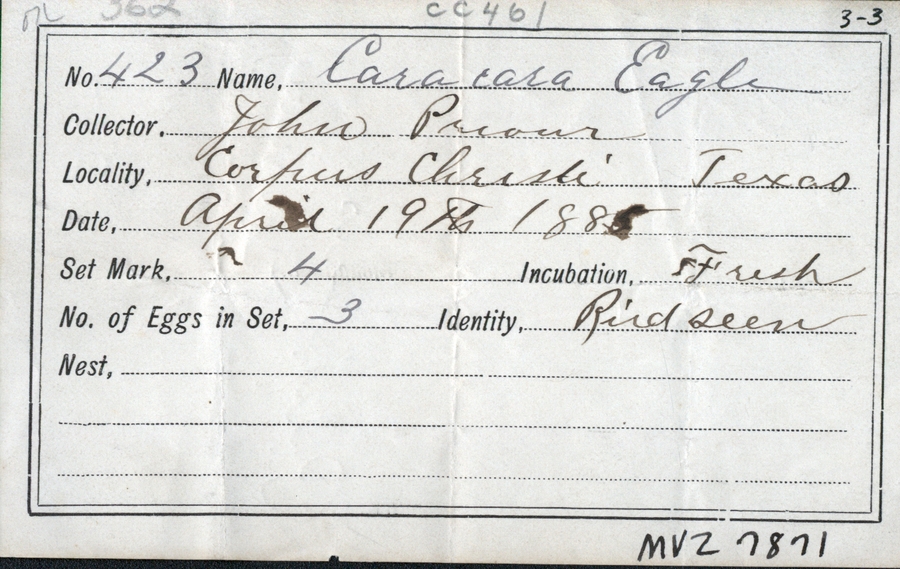 362 CC461 3-3
No. 423 Name, Caracara Eagle
Collector, John Priour
Locality, Corpus Christi Texas
Date, April 19th 188
Set Mark, 4 Incubation, Fresh
No. of Eggs in Set, 3 Identity, Bird seen
Nest,
MVZ 7871